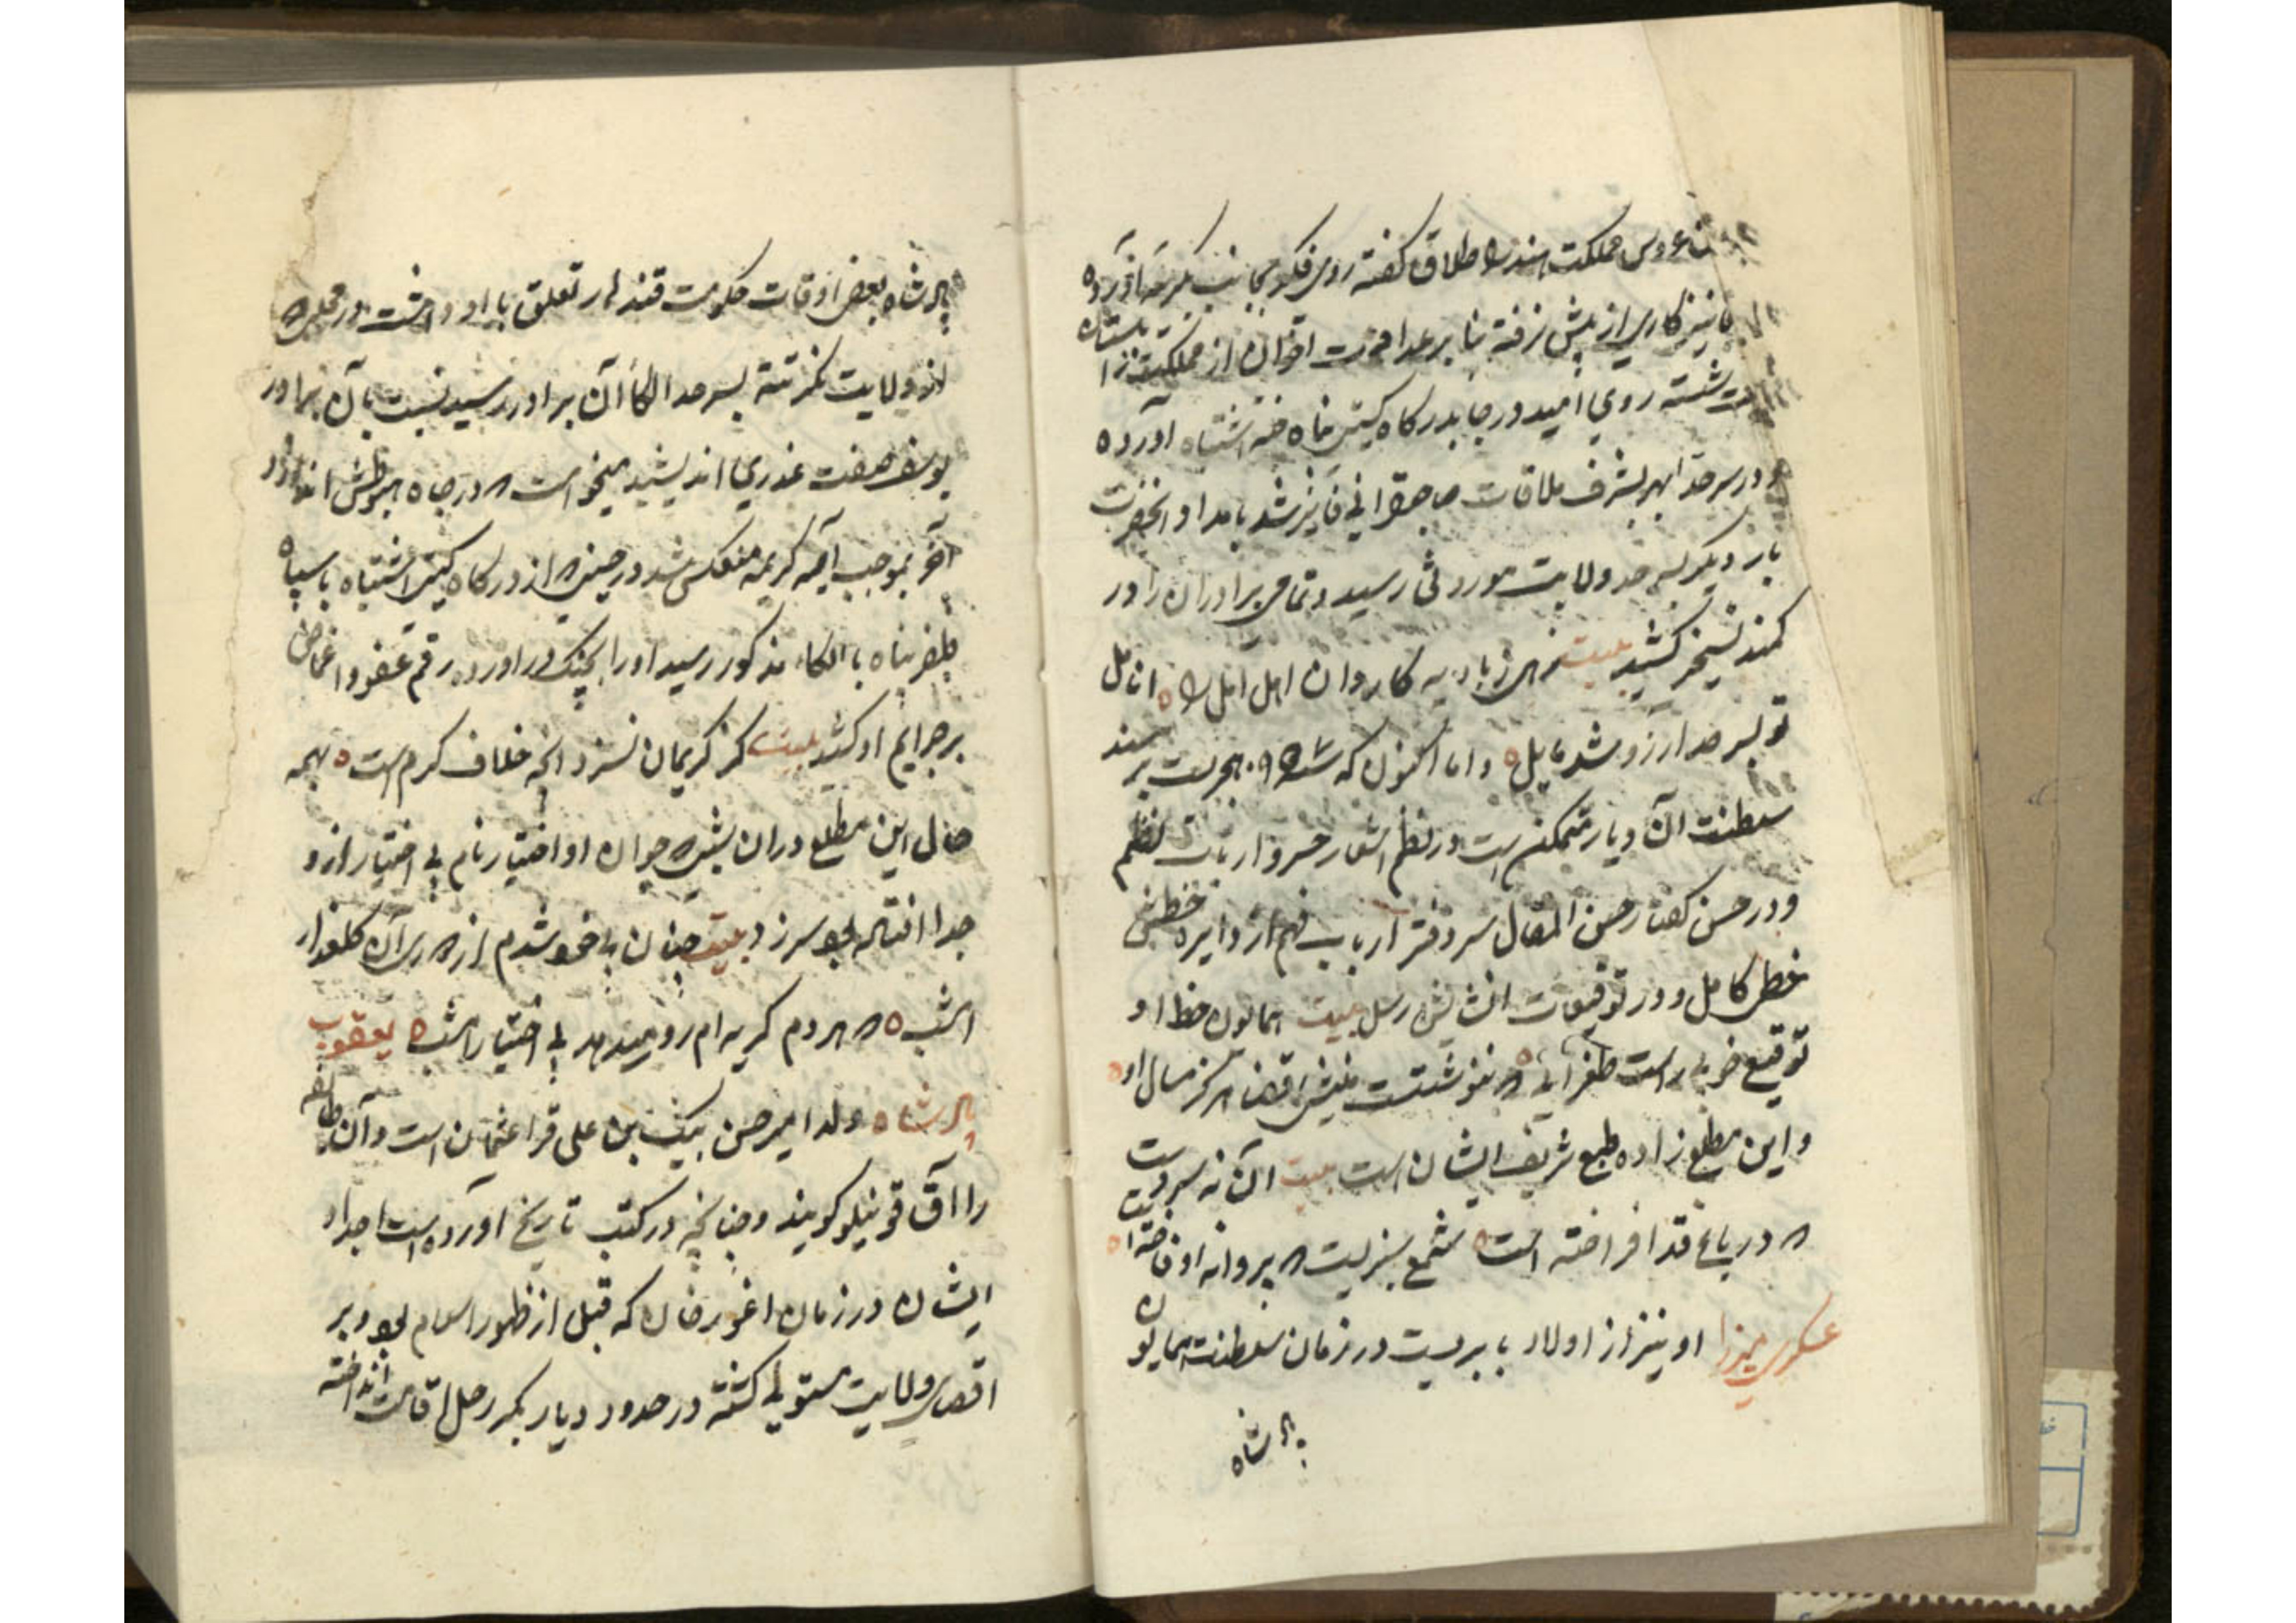 عروس مملکت هند را طلاق گفته روی فکر بجانب آورده
نیز کاری از پیش نرفته بنا بر عداوت اخوان از مملکت
شسته روی امید و رجا بدرگاه گیتی پناه اشتباه آورده
و در سرحد ابهر بشرف ملاقات صاحبقرانی فایز شد بامداد آنحضرت
بار دیگر بسرحد ولایت موروثی رسید و تمامی برادران را در
کمند تسخیر کشید بیت زهی ز بادیه کاروان اهل امل را ه انامل
تو بسرحد آرزو شد مایل ه و اما اکنون که هجریست بر مسند
سلطنت آن دیار متمکن است در نظم اشعار خسرو ارباب نظم
و در حسن گفتار حسن المقال سر دفتر ارباب فهم از دایره خطش
خطی کامل و در توقیعات انشایش رسل بیت همایون خط او
توقیع خوبی راست طغرایی ه که ننوشتست منشی قضا هرگز مثال او ه
و این مطلع زاده طبع شریف ایشان است بیت آن نه سرویست
که در باغ قد افراخته است ه شمع سبزیست که پروانه او فاخته است ه
عسکری میرزا او نیز از اولاد بابریست در زمان سلطنت همایون
پادشاه
پادشاه بعضی اوقات حکومت قندهار تعلق باو داشت در محلی که
از ولایت گذشته بسرحد الکاء آن برادر رسید نسبت بآن برادر
یوسف صفت غدری اندیشید میخواست که در چاه هبوطش اندازد
آخر بموجب آیه کریمه منعکس شد در حینی که از درگاه گیتی اشتباه با سپاه
ظفر پناه با الکاء مذکور رسید او را بچنگ در آورده رقم عفو و اغماض
بر جرایم او کشید بیت کز کریمان نسزد آنچه خلاف کرم است ه بهمه
حال این مطلع در آن بیشه که جوان او اختیار نام بی اختیار از او
جدا افتاده بود سر زد بیت چنان بیخود شدم از دوری آن گلعذار
امشب ه که هر دم گریه ام رو میدهد بی اختیار امشب ه یعقوب
پادشاه ولد امیر حسن بیک بن علی قرا عثمان است و آن طایفه
را آق قوینلو گویند و چنانچه در کتب تاریخ آورده است اجداد
ایشان در زمان اغور خان که قبل از ظهور اسلام بود و بر
اقصای ولایت مستولی گشته در حدود دیار بکر رحل اقامت انداخته